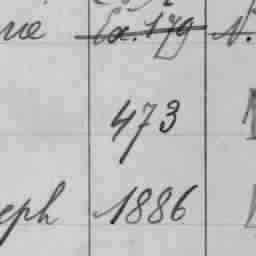 Ex. 179 N.
473
eph 1886